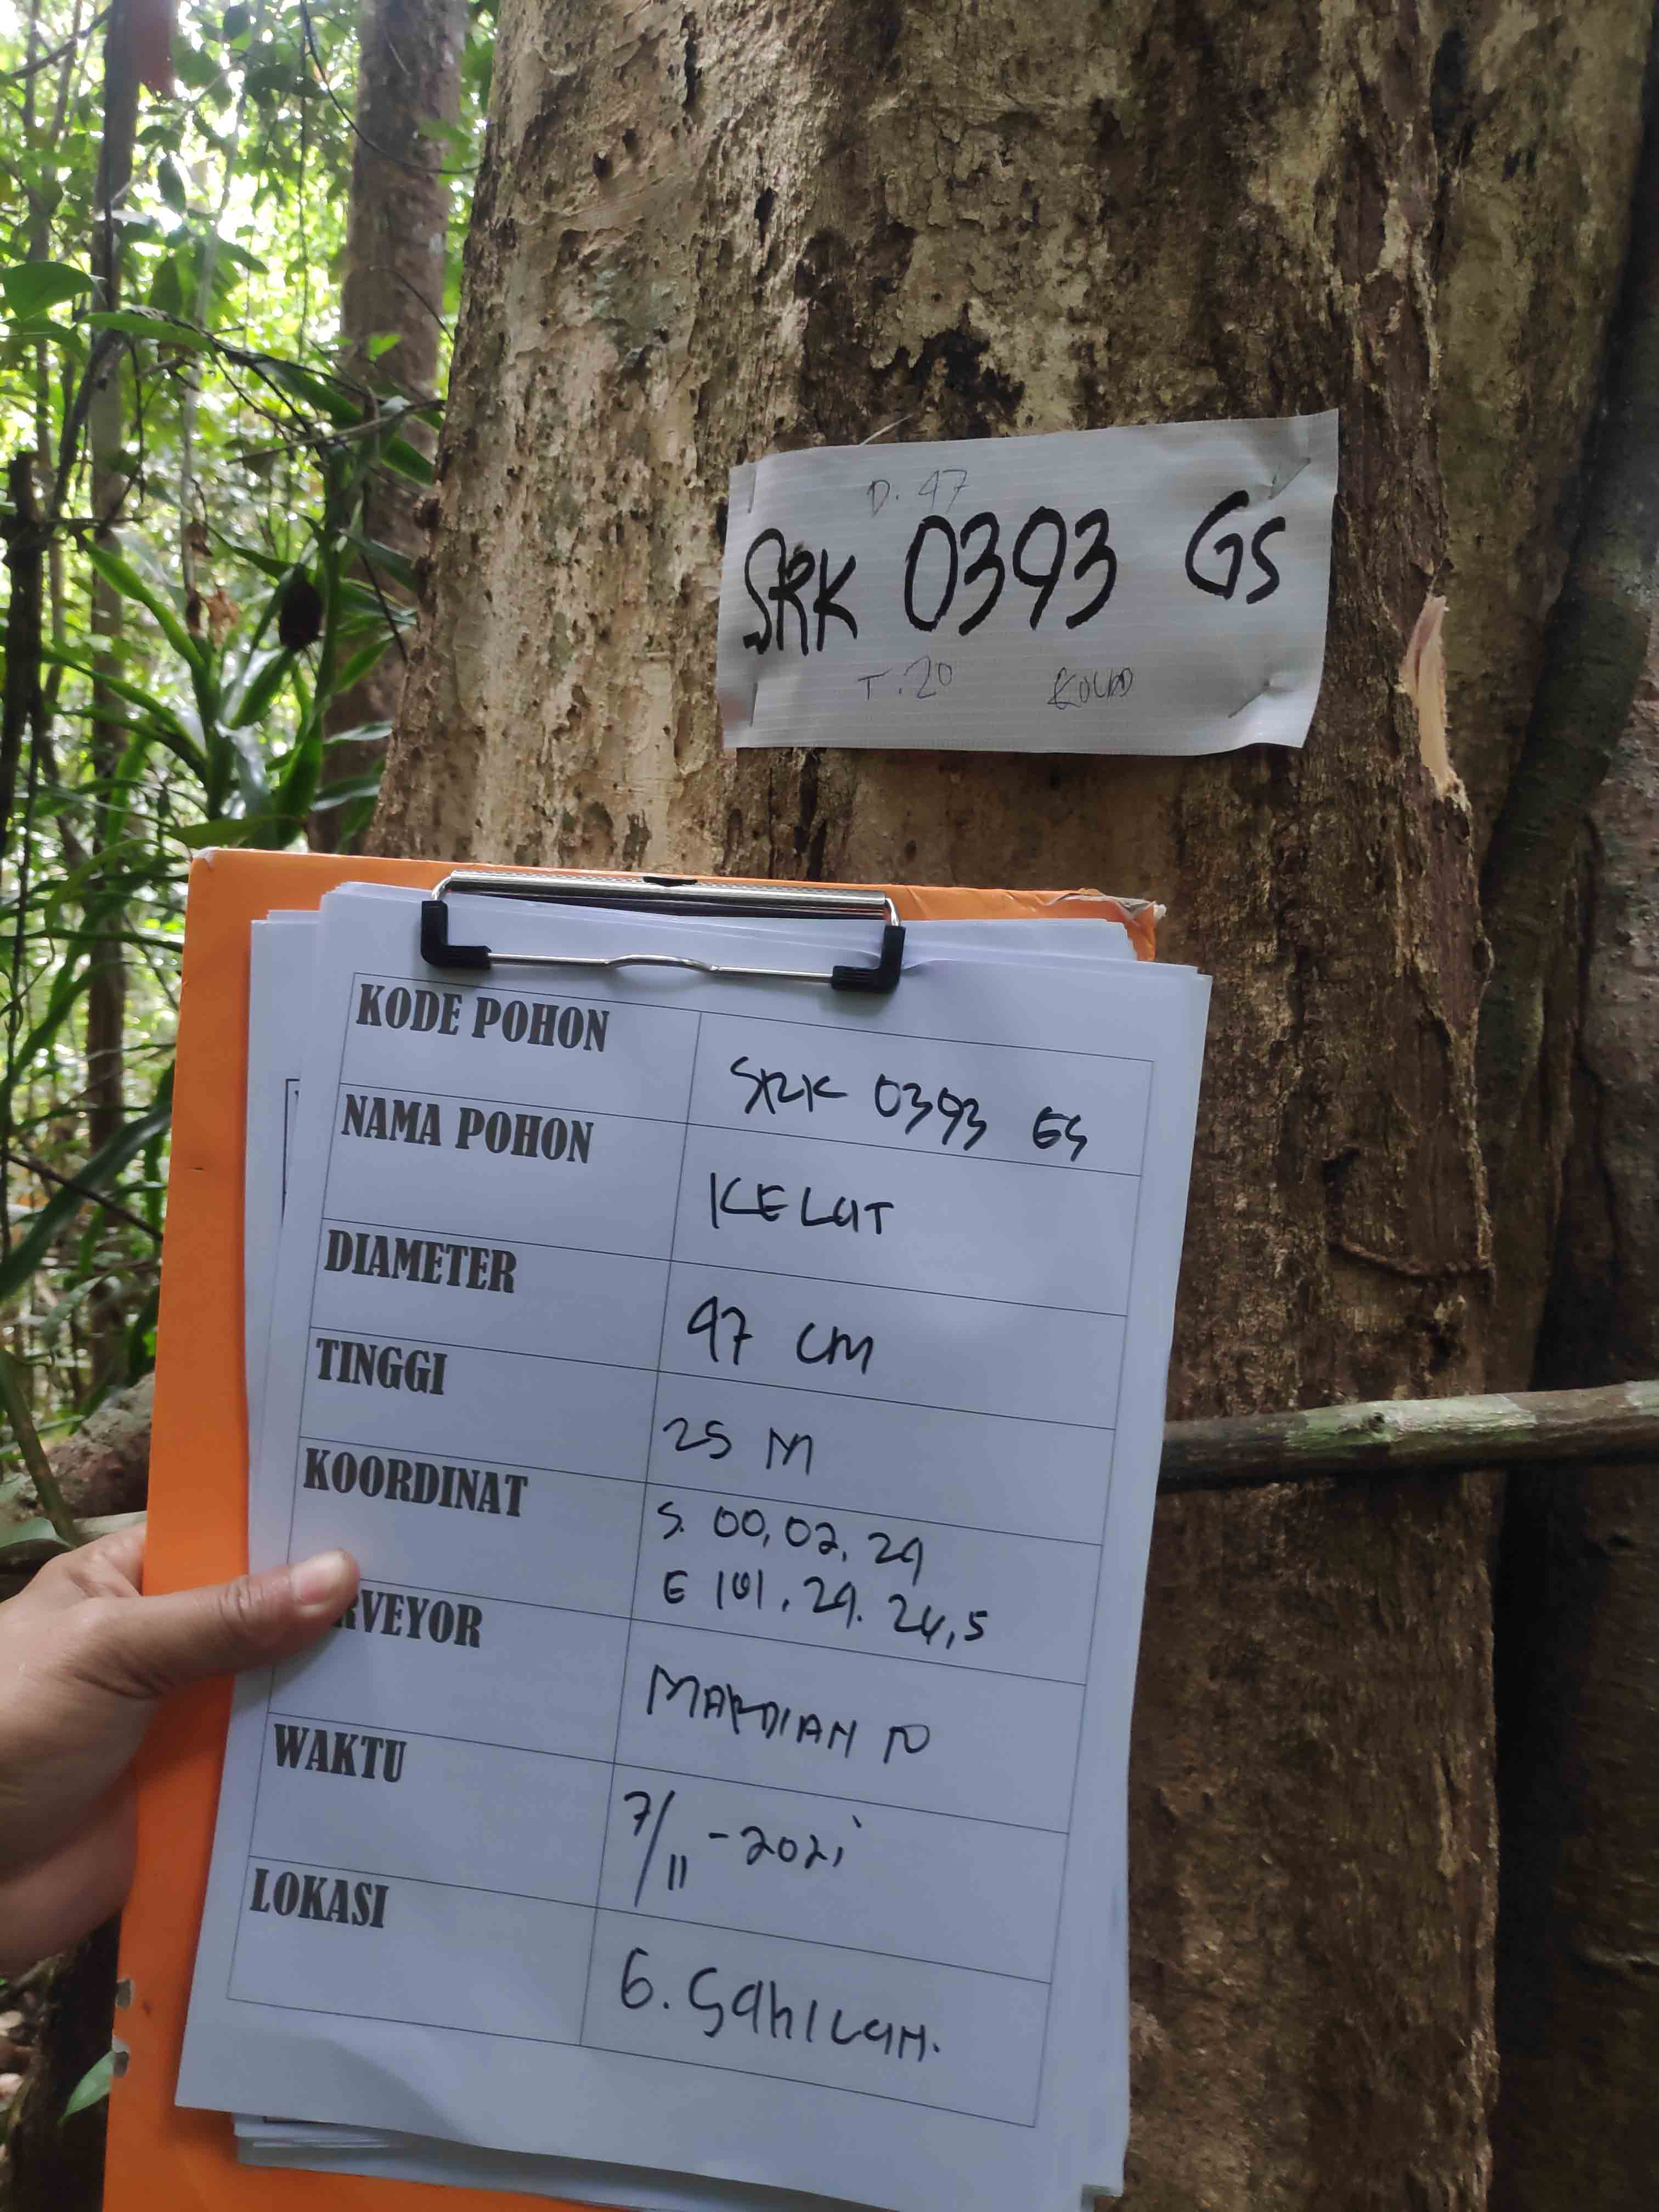 D. 47
SRK 0393 GS
T. 20
KODE POHON
SRK 0393 GS
NAMA POHON
KELAT
DIAMETER
47 CM
TINGGI
25 M
KOORDINAT
S. 00,02,29
E 101.29.24,5
RVEYOR
MARDIAN TO
WAKTU
7/11-2021
LOKASI
G. SAHILAN.